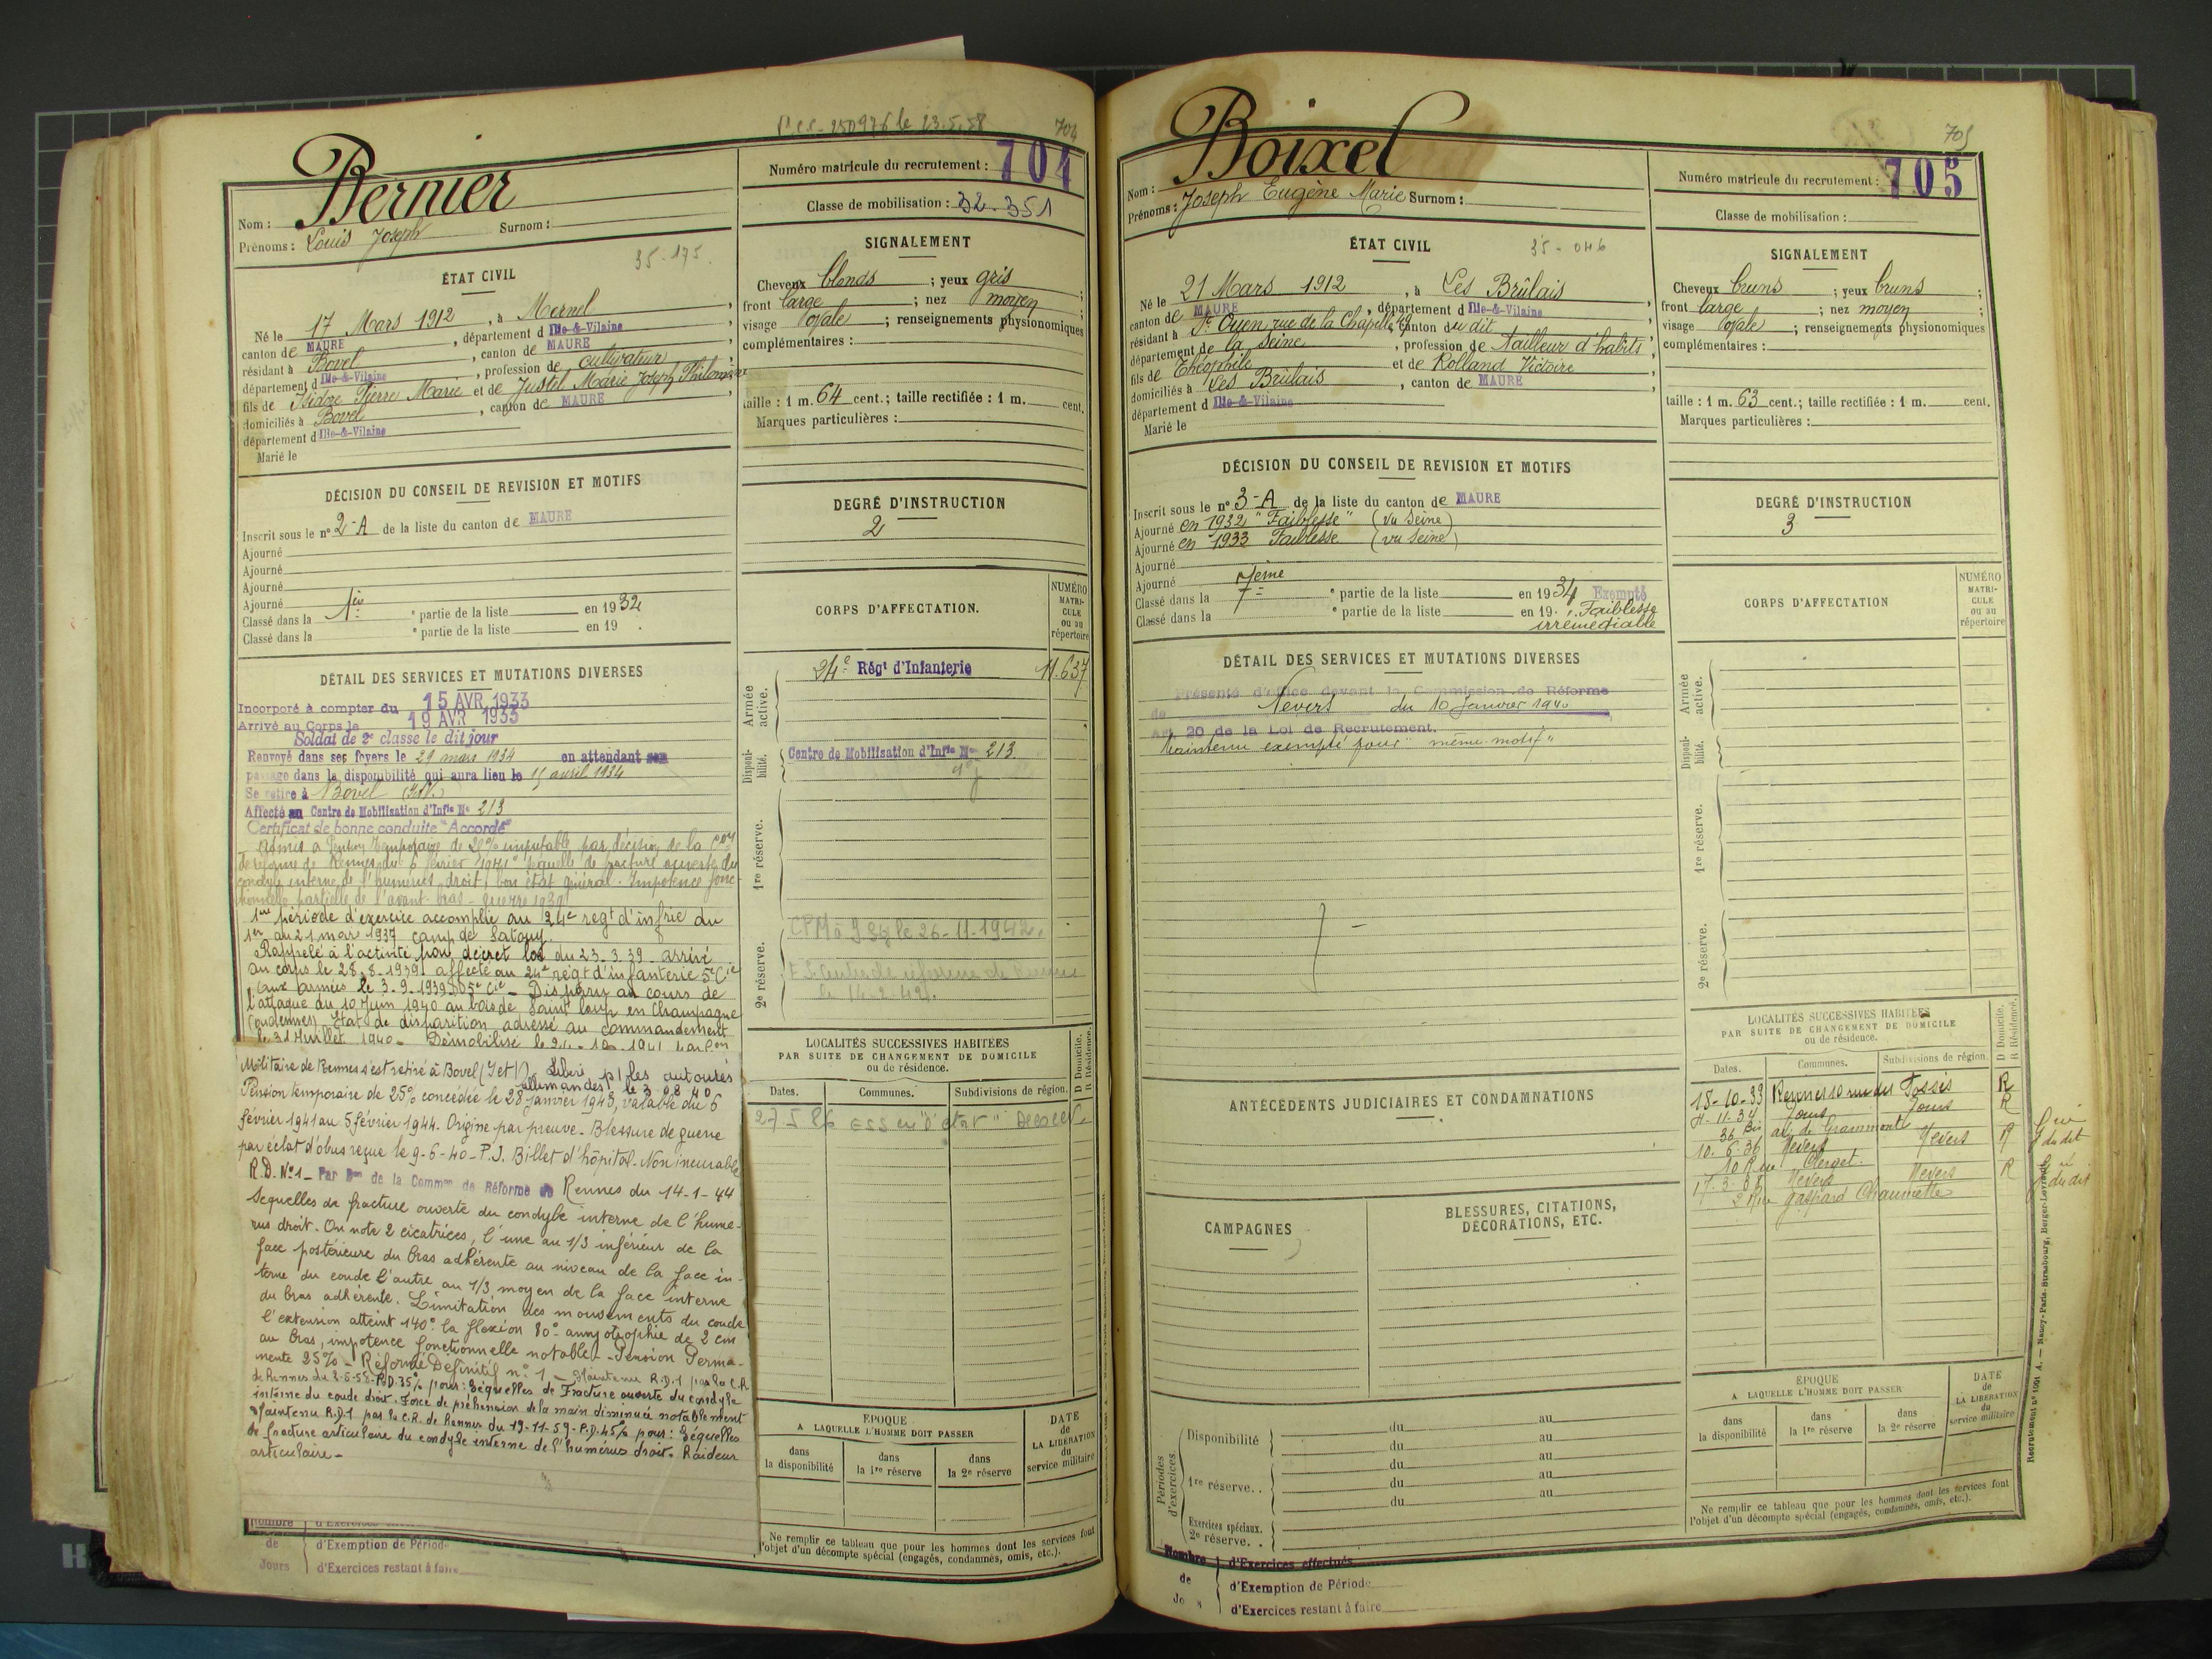 Pr C.C. 250976 le 23.5.58
704
Bernier
Nom :
Prénoms : Louis Joseph Surnom :
Numéro matricule du recrutement : 704
Classe de mobilisation : 32.351
ÉTAT CIVIL
35-175.
Né le 17 Mars 1912, à Mernel,
canton de MAURE, département d Ille-&-Vilaine,
résidant à Bovel, canton de MAURE,
département d Ille-&-Vilaine, profession de cultivateur,
fils de Isidore Pierre Marie et de Justel Marie Joseph Philomène
domiciliés à Bovel, canton de MAURE,
département d Ille-&-Vilaine
Marié le
SIGNALEMENT
Cheveux blonds ; yeux gris ;
front large ; nez moyen ;
visage ovale ; renseignements physionomiques
complémentaires :
taille : 1 m. 64 cent.; taille rectifiée : 1 m. cent.
Marques particulières :
DÉCISION DU CONSEIL DE REVISION ET MOTIFS
Inscrit sous le n° 2-A de la liste du canton de MAURE
Ajourné
Ajourné
Ajourné
Ajourné
Classé dans la 1ère ° partie de la liste en 1932
Classé dans la ° partie de la liste en 19 .
DEGRÉ D'INSTRUCTION
2
CORPS D'AFFECTATION.
NUMÉRO MATRI-CULE ou au répertoire
Armée active.
24e Régt d'Infanterie 11.637
Disponi-bilité.
Centre de Mobilisation d'Infie No 213
1re réserve.
2e réserve.
CPM à le 26-11-1942.
Centre de réforme de Rennes
DÉTAIL DES SERVICES ET MUTATIONS DIVERSES
Incorporé à compter du 15 AVR 1933
Arrivé au Corps le 19 AVR 1933
Soldat de 2e classe le dit jour
Renvoyé dans ses foyers le 29 mars 1934 en attendant son
passage dans la disponibilité qui aura lieu le 15 avril 1934
Se retire à Bovel (I&V.)
Affecté au Centre de Mobilisation d'Infie No 213
Certificat de bonne conduite "Accordé"
Admis à Pension Temporaire de 20% imputable par décision de la Con
de réforme de Rennes du 6 février 1941 "séquelle de fracture ouverte du
condyle interne de l'humérus droit, bon état général. Impotence fonc-
tionnelle partielle de l'avant-bras - guerre 1939"
1ère période d'exercice accomplie au 24e regt d'infrie du
1er au 21 mar 1937 camp de Satory.
Rappelé à l'activité par décret loi du 23.3.39 arrivé
au corps le 28.8.1939 affecté au 24e régt d'infanterie 5e Cie
aux armées le 3-9-1939 5e Cie - Disparu au cours de
l'attaque du 10 Juin 1940 au bois de Saint loup en Champagne
(ardennes) Etat de disparition adressé au commandement
le 31 Juillet 1940 - Démobilisé le 24-10-1941 par Con
Militaire de Rennes s'est retiré à Bovel (I et V) - Libéré p/ les autorités
allemandes le 3 08 40
Pension temporaire de 25% concédée le 28 janvier 1943, valable du 6
février 1941 au 5 février 1944. Origine par preuve - Blessure de guerre
par éclat d'obus reçue le 9-6-40 - P.J. Billet d'hôpital - Non incurable
R.D. N°1 - Par Don de la Common de Réforme de Rennes du 14-1-44
Séquelles de fracture ouverte du condyle interne de l'humé-
rus droit. On note 2 cicatrices, l'une au 1/3 inférieur de la
face postérieure du bras adhérente au niveau de la face in-
terne du coude l'autre au 1/3 moyen de la face interne
du bras adhérente. Limitation des mouvements du coude
l'extension atteint 140° la flexion 80° amyotrophie de 2 cm
au bras, impotence fonctionnelle notable - Pension Perma-
nente 25% - Réformé Définitif n° 1 - Maintenu R.D.1 par la C.R
de Rennes du 2-6-58 - P.D. 35% pour : Séquelles de Fracture ouverte du condyle
interne du coude droit - Force de préhension de la main diminuée notablement
Maintenu R.D.1 par la C.R. de Rennes du 19-11-59 - P.D. 45% pour : Séquelles
de fracture articulaire du condyle interne de l'humérus droit. Raideur
articulaire -
LOCALITÉS SUCCESSIVES HABITÉES
PAR SUITE DE CHANGEMENT DE DOMICILE
ou de résidence.
D Domicile. R Résidence.
Dates. Communes. Subdivisions de région.
27 5 86
ÉPOQUE
A LAQUELLE L'HOMME DOIT PASSER
dans la disponibilité
dans la 1re réserve
dans la 2e réserve
DATE de LA LIBÉRATION du service militaire
Ne remplir ce tableau que pour les hommes dont les services font
l'objet d'un décompte spécial (engagés, condamnés, omis, etc.).
Nombre
de d'Exemption de Période
Jours d'Exercices restant à faire
705
Boixel
Nom :
Prénoms : Joseph Eugène Marie Surnom :
Numéro matricule du recrutement : 705
Classe de mobilisation :
ÉTAT CIVIL
35-046
Né le 21 Mars 1912, à Les Brûlais,
canton de MAURE, département d Ille-&-Vilaine,
résidant à St Ouen rue de la Chapelle, canton du dit,
département de la Seine, profession de tailleur d'habits,
fils de Théophile et de Rolland Victoire,
domiciliés à Les Brûlais, canton de MAURE,
département d Ille-&-Vilaine
Marié le
SIGNALEMENT
Cheveux bruns ; yeux bruns ;
front large ; nez moyen ;
visage ovale ; renseignements physionomiques
complémentaires :
taille : 1 m. 63 cent.; taille rectifiée : 1 m. cent.
Marques particulières :
DÉCISION DU CONSEIL DE REVISION ET MOTIFS
Inscrit sous le n° 3-A de la liste du canton de MAURE
Ajourné en 1932 "Faiblesse" (vu Seine)
Ajourné en 1933 Faiblesse (vu Seine)
Ajourné
Ajourné
Classé dans la 7ème ° partie de la liste en 1934 Exempté
Classé dans la ° partie de la liste en 19 . "Faiblesse
irrémédiable
DEGRÉ D'INSTRUCTION
3
CORPS D'AFFECTATION
NUMÉRO MATRI-CULE ou au répertoire
Armée active.
Disponi-bilité.
1re réserve.
2e réserve.
DÉTAIL DES SERVICES ET MUTATIONS DIVERSES
Présenté d'office devant la Commission de Réforme
de Nevers du 10 Janvier 1940
Art. 20 de la Loi de Recrutement.
Maintenu exempté pour "même motif"
LOCALITÉS SUCCESSIVES HABITÉES
PAR SUITE DE CHANGEMENT DE DOMICILE
ou de résidence.
D Domicile. R Résidence.
Dates. Communes. Subdivisions de région.
18-10-33 Rennes 10 rue des Fossés R
11-34 Tours Tours R
36 Bis av. de Grammont
10.6.36 Nevers Nevers R
10 Rue Clerget.
17.3.38 Nevers Nevers R
2 Rue Gaspard Chaumette
ANTÉCÉDENTS JUDICIAIRES ET CONDAMNATIONS
CAMPAGNES
BLESSURES, CITATIONS,
DÉCORATIONS, ETC.
Périodes d'exercices.
Disponibilité du au
du au
1re réserve. . du au
du au
du au
Exercices spéciaux.
2e réserve. .
ÉPOQUE
A LAQUELLE L'HOMME DOIT PASSER
dans la disponibilité
dans la 1re réserve
dans la 2e réserve
DATE de LA LIBÉRATION du service militaire
Ne remplir ce tableau que pour les hommes dont les services font
l'objet d'un décompte spécial (engagés, condamnés, omis, etc.).
Nombre d'Exercices effectués
de d'Exemption de Période
Jo s d'Exercices restant à faire
Recrutement n° 1001 A. — Nancy-Paris-Strasbourg, Berger-Levrault